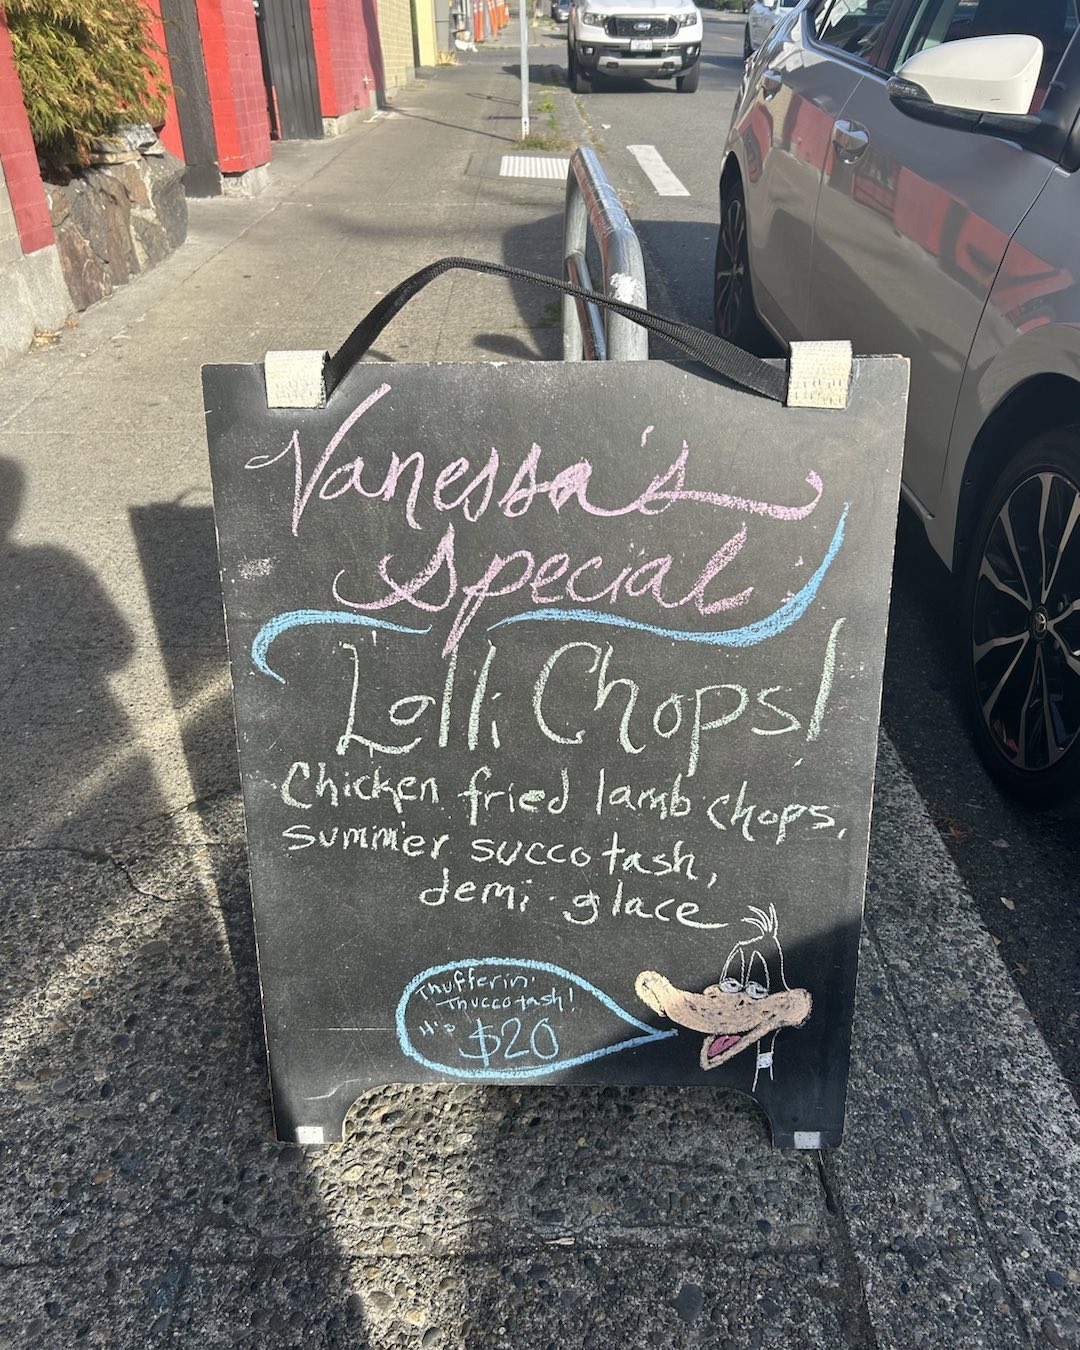 Vanessa's
Special:
Lolli Chops!
Chicken fried lamb chops,
summer succotash,
demi-glace
Thufferin'
Thuccotash!
$20